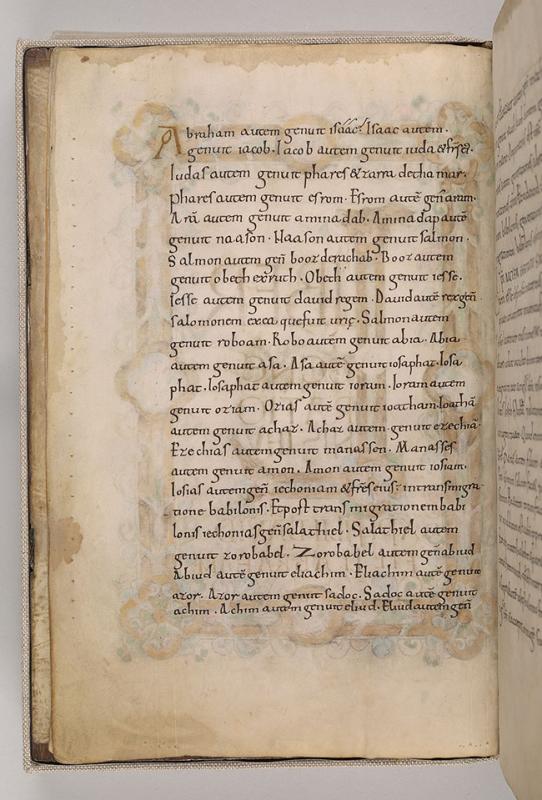 Abraham autem genuit isááč. Isaac autem.
genuit iacob. Iacob autem genuit iuda & fr̄s ei᷒.
Iudas autem genuit phares & zarra dethamar.
Phares autem genuit esrom. Esrom autē geñ aram.
Arā autem genuit aminadab. Aminadap autē
genuit naason. Naason autem genuit salmon.
Salmon autem geñ booz derachab. Booz autem
genuit obech exruth. Obech autem genuit iesse.
Iesse autem genuit david regem. David autē rex geñ
salomonem exea quefuit urię. Salmon autem
genuit roboam. Robo autem genuit abia. Abia
autem genuit asa. Asa autē genuit iosaphat. Iosa
phat. Iosaphat autem genuit ioram. Ioram autem
genuit oziam. Ozias autē genuit ioatham. Ioathā
autem genuit achaz. Achaz autem genuit ezechiā.
Ezechias autem genuit manassen. Manasses
autem genuit amon. Amon autem genuit iosiam.
Iosias autem geñ iechoniam & fr̄s eius. intransmigra
tione babilonis. Et post transmigrationem babi
lonis iechonias geñ salathiel. Salathiel autem
genuit zorobabel. Zorobabel autem geñ abiud
Abiud autē genuit eliachim. Eliachim autē genuit
azor. Azor autem genuit sadoc. Sadoc autē genuit
achim. Achim autem genuit eliud. Eliud autem geñ